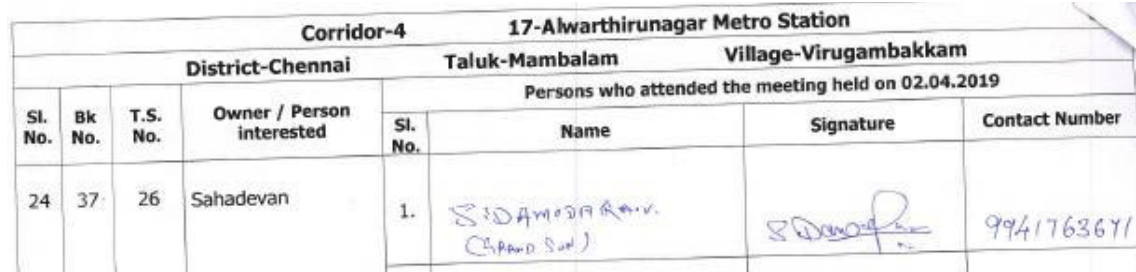 Corridor-4 17-Alwarthirunagar Metro Station
District-Chennai Taluk-Mambalam Village-Virugambakkam
Persons who attended the meeting held on 02.04.2019
Sl. No. Bk No. T.S. No. Owner / Person interested Sl. No. Name Signature Contact Number
24 37 26 Sahadevan 1. S. DAMODARAN. 9941763671
(GRAND SON)